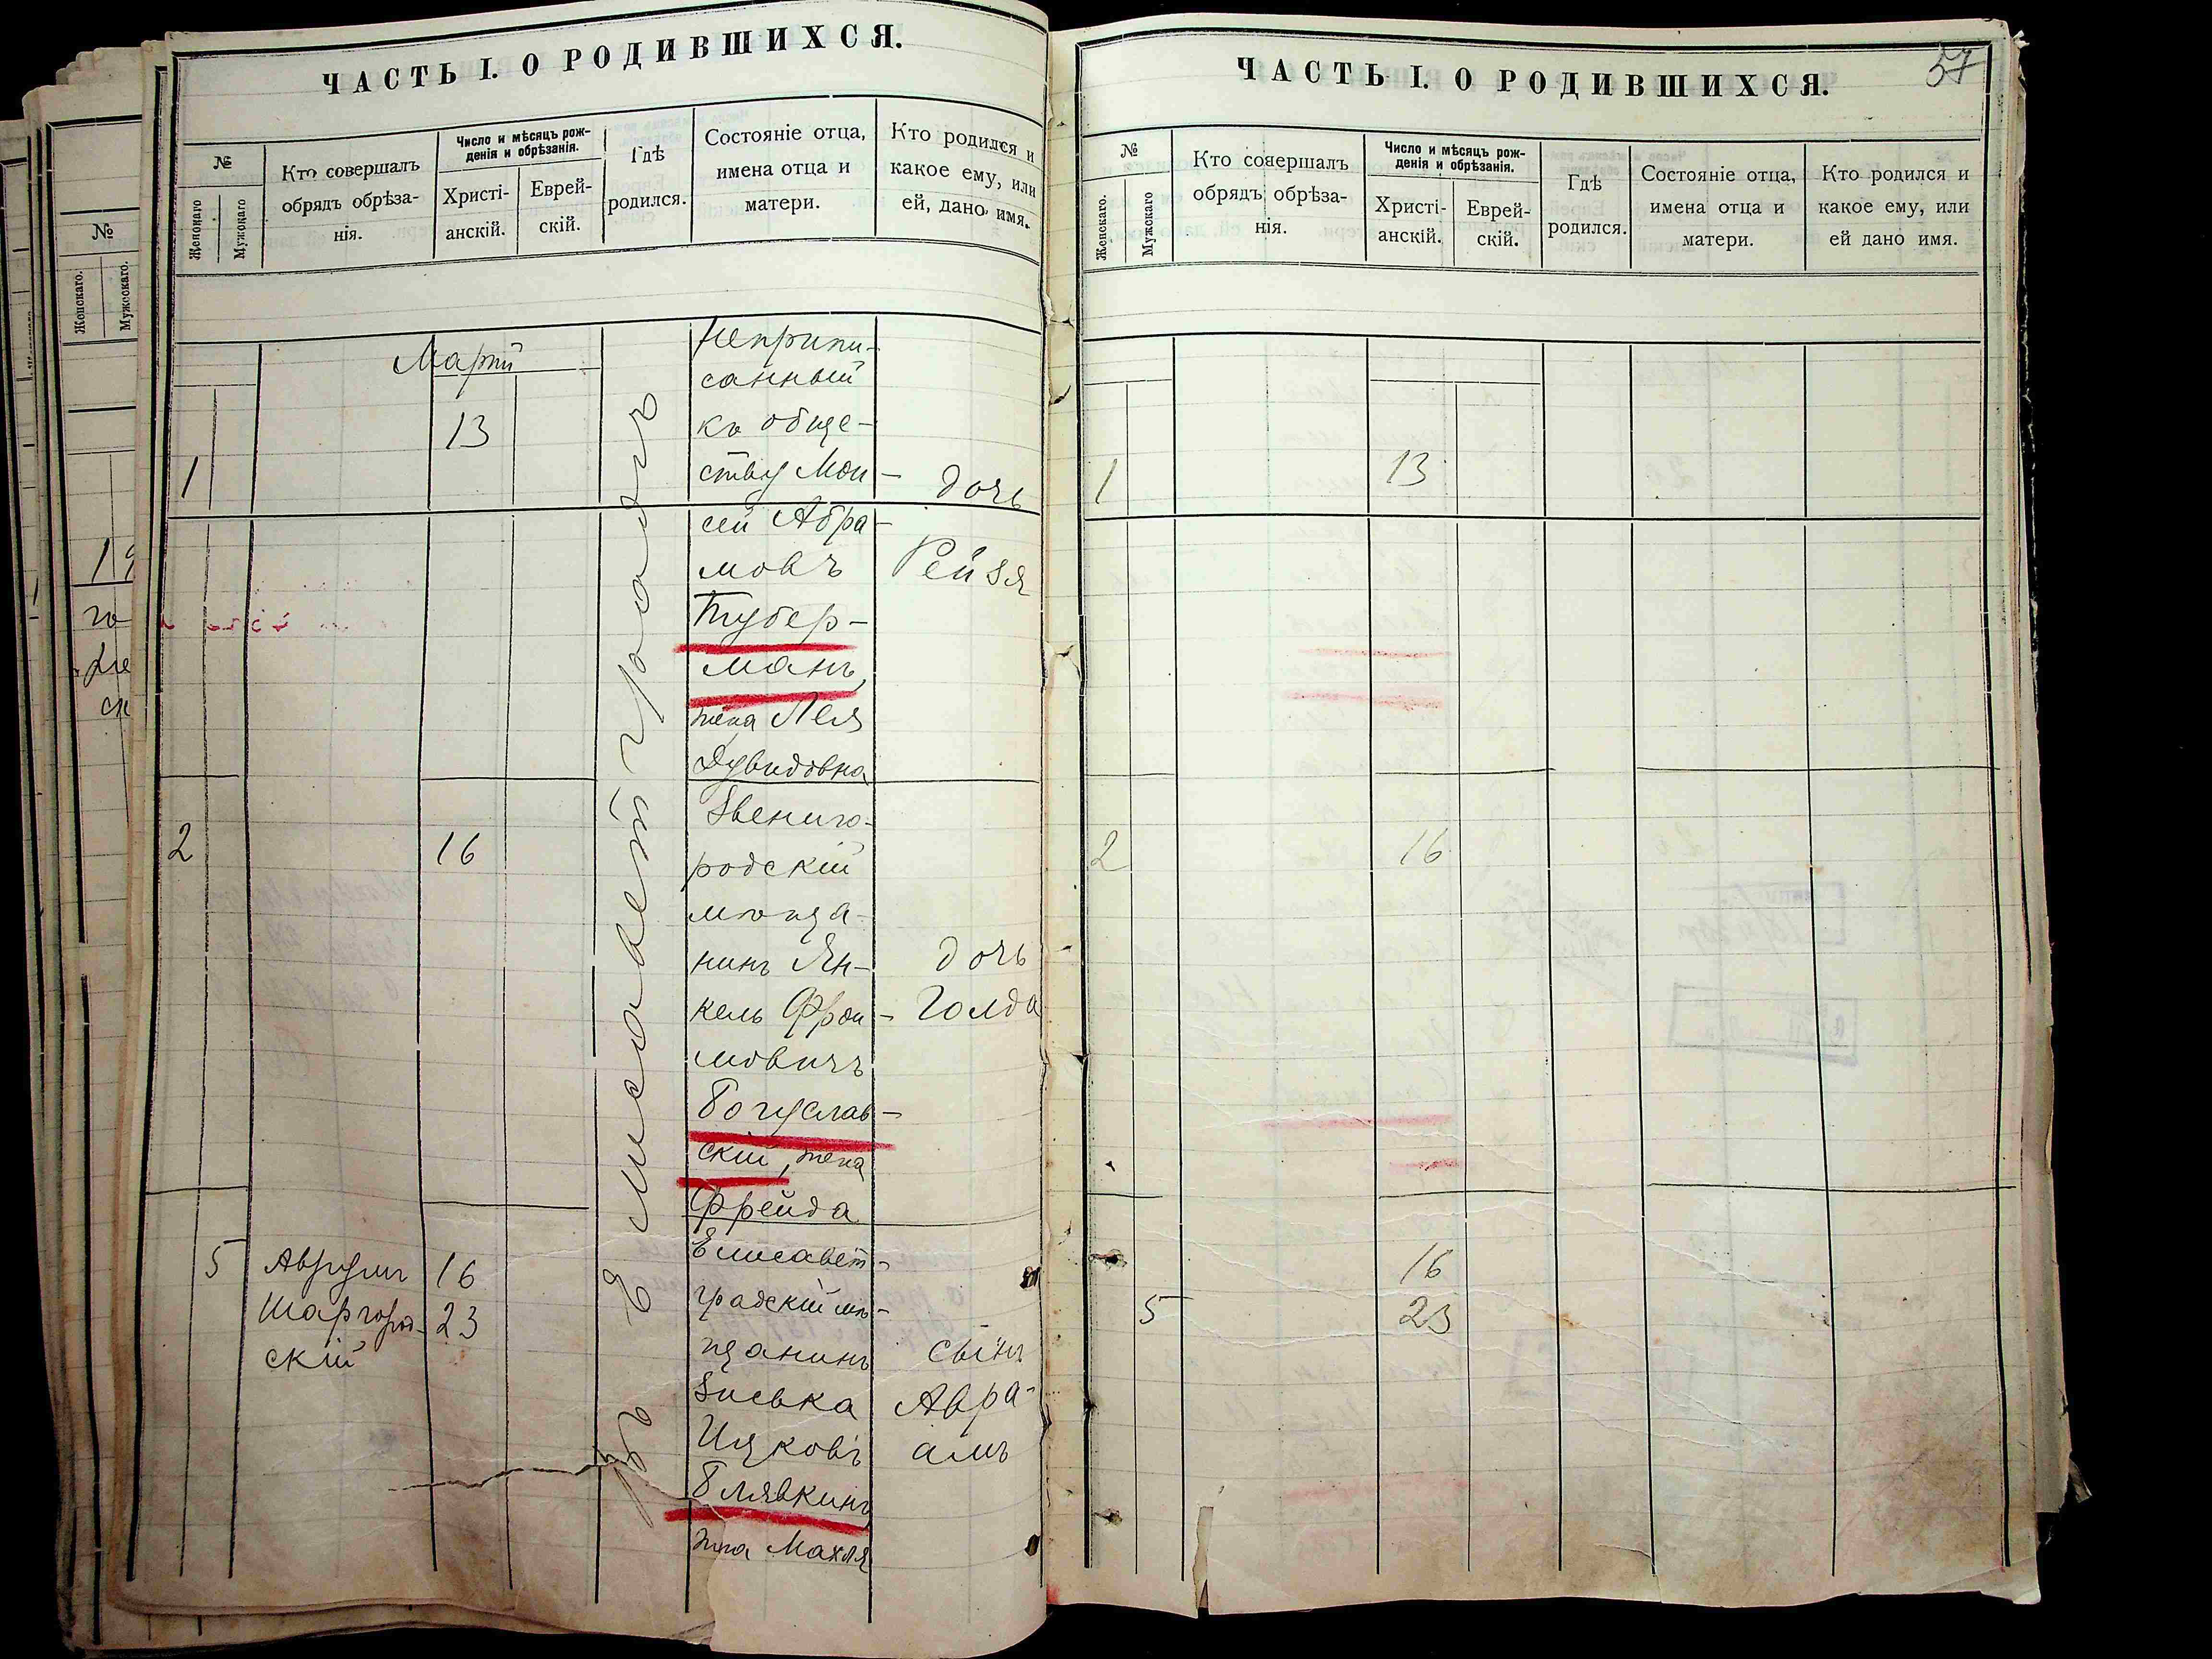 ЧАСТЬ I. О РОДИВШИХСЯ.
№
Женскаго
Мужскаго
Кто совершалъ
обрядъ обрѣза-
нія.
Число и мѣсяцъ рож-
денія и обрѣзанія.
Христі-
анскій.
Еврей-
скій.
Гдѣ
родился.
Состояніе отца,
имена отца и
матери.
Кто родился и
какое ему, или
ей, дано имя.
Мартъ
1
13
Въ Елисаветградѣ
Неприпи-
санный
къ обще-
ству Мои-
сей Абра-
мовъ
Губер-
манъ,
жена Лея
Дувидовна
дочь
Рейзя
2
16
Звениго-
родскій
мѣща-
нинъ Ян-
кель Фрои-
мовичъ
Богуслав-
скій, жена
Фрейда
дочь
Голда
5
Аврумъ
Шаргород-
скій
16
23
Елисавет-
градскій мѣ-
щанинъ
Зиська
Ицковъ
Блявкинъ,
жена Махля
сынъ
Авра-
амъ
ЧАСТЬ I. О РОДИВШИХСЯ.
57
№
Женскаго.
Мужскаго
Кто совершалъ
обрядъ обрѣза-
нія.
Число и мѣсяцъ рож-
денія и обрѣзанія.
Христі-
анскій.
Еврей-
скій.
Гдѣ
родился.
Состояніе отца,
имена отца и
матери.
Кто родился и
какое ему, или
ей дано имя.
1
13
2
16
5
16
23
№
Женскаго.
Мужскаго.